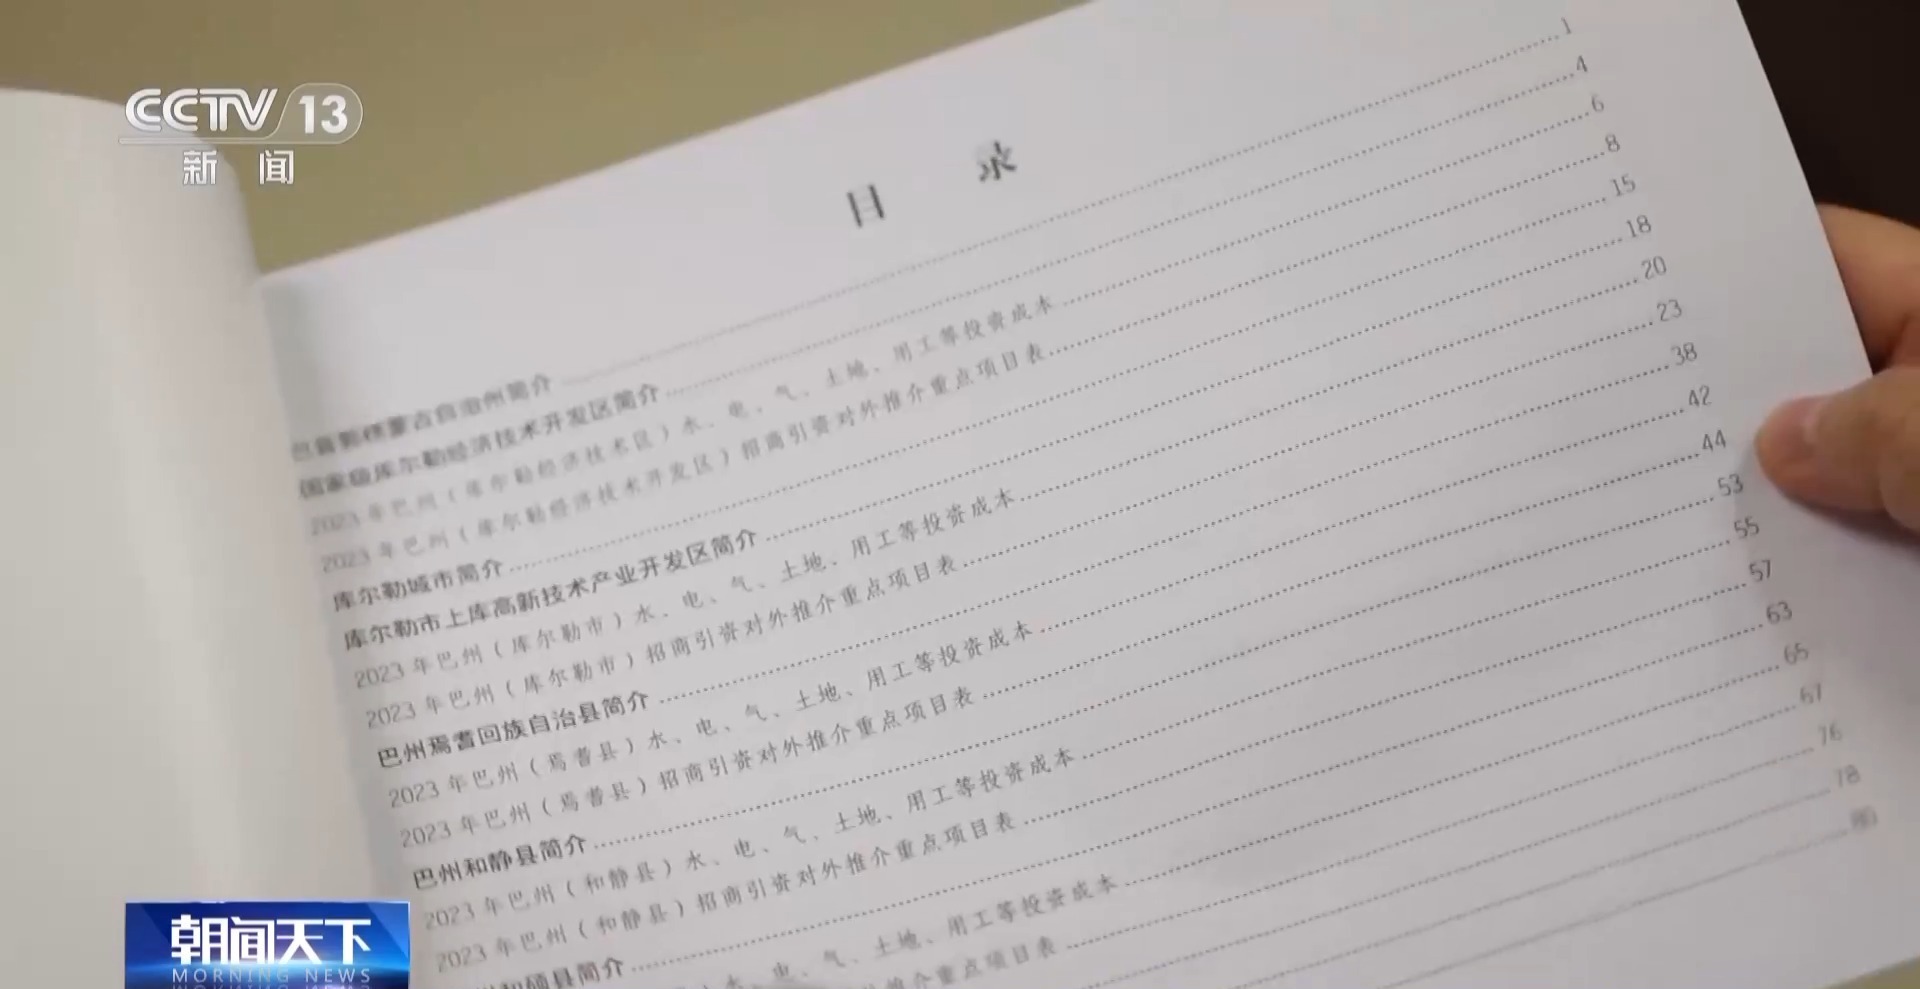 CCTV 13
新闻
目 录
巴音郭楞蒙古自治州简介 1
国家级库尔勒经济技术开发区简介 4
2023年巴州（库尔勒经济技术区）水、电、气、土地、用工等投资成本 6
2023年巴州（库尔勒经济技术开发区）招商引资对外推介重点项目表 8
库尔勒城市简介 15
库尔勒市上库高新技术产业开发区简介 18
2023年巴州（库尔勒市）水、电、气、土地、用工等投资成本 20
2023年巴州（库尔勒市）招商引资对外推介重点项目表 23
巴州焉耆回族自治县简介 38
2023年巴州（焉耆县）水、电、气、土地、用工等投资成本 42
2023年巴州（焉耆县）招商引资对外推介重点项目表 44
巴州和静县简介 53
2023年巴州（和静县）水、电、气、土地、用工等投资成本 55
2023年巴州（和静县）招商引资对外推介重点项目表 57
和硕县简介 63
水、电、气、土地、用工等投资成本 65
推介重点项目表 67
76
78
80
朝闻天下
MORNING NEWS